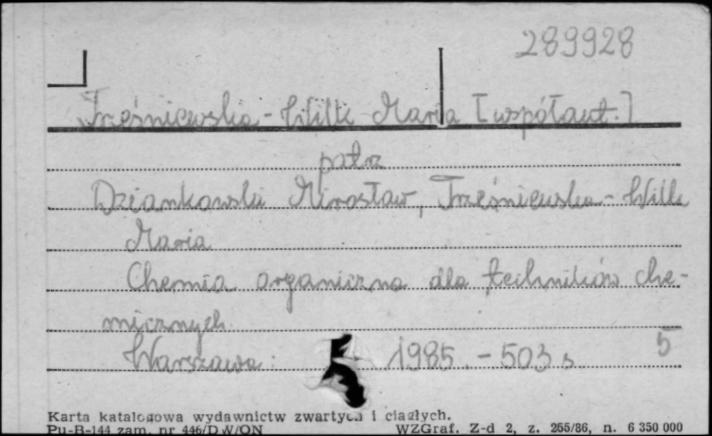 289928
Trześniewska-Wilk Maria [współaut.]
patrz
Dziankowski Mirosław, Trześniewska-Wilk
Maria
Chemia organiczna dla techników che-
micznych.
Warszawa: 1985. - 503 s. 5
Karta katalogowa wydawnictw zwartych i ciągłych.
Pu-B-144 zam. nr 446/DW/ON WZGraf. Z-d 2, z. 266/86, n. 6 350 000